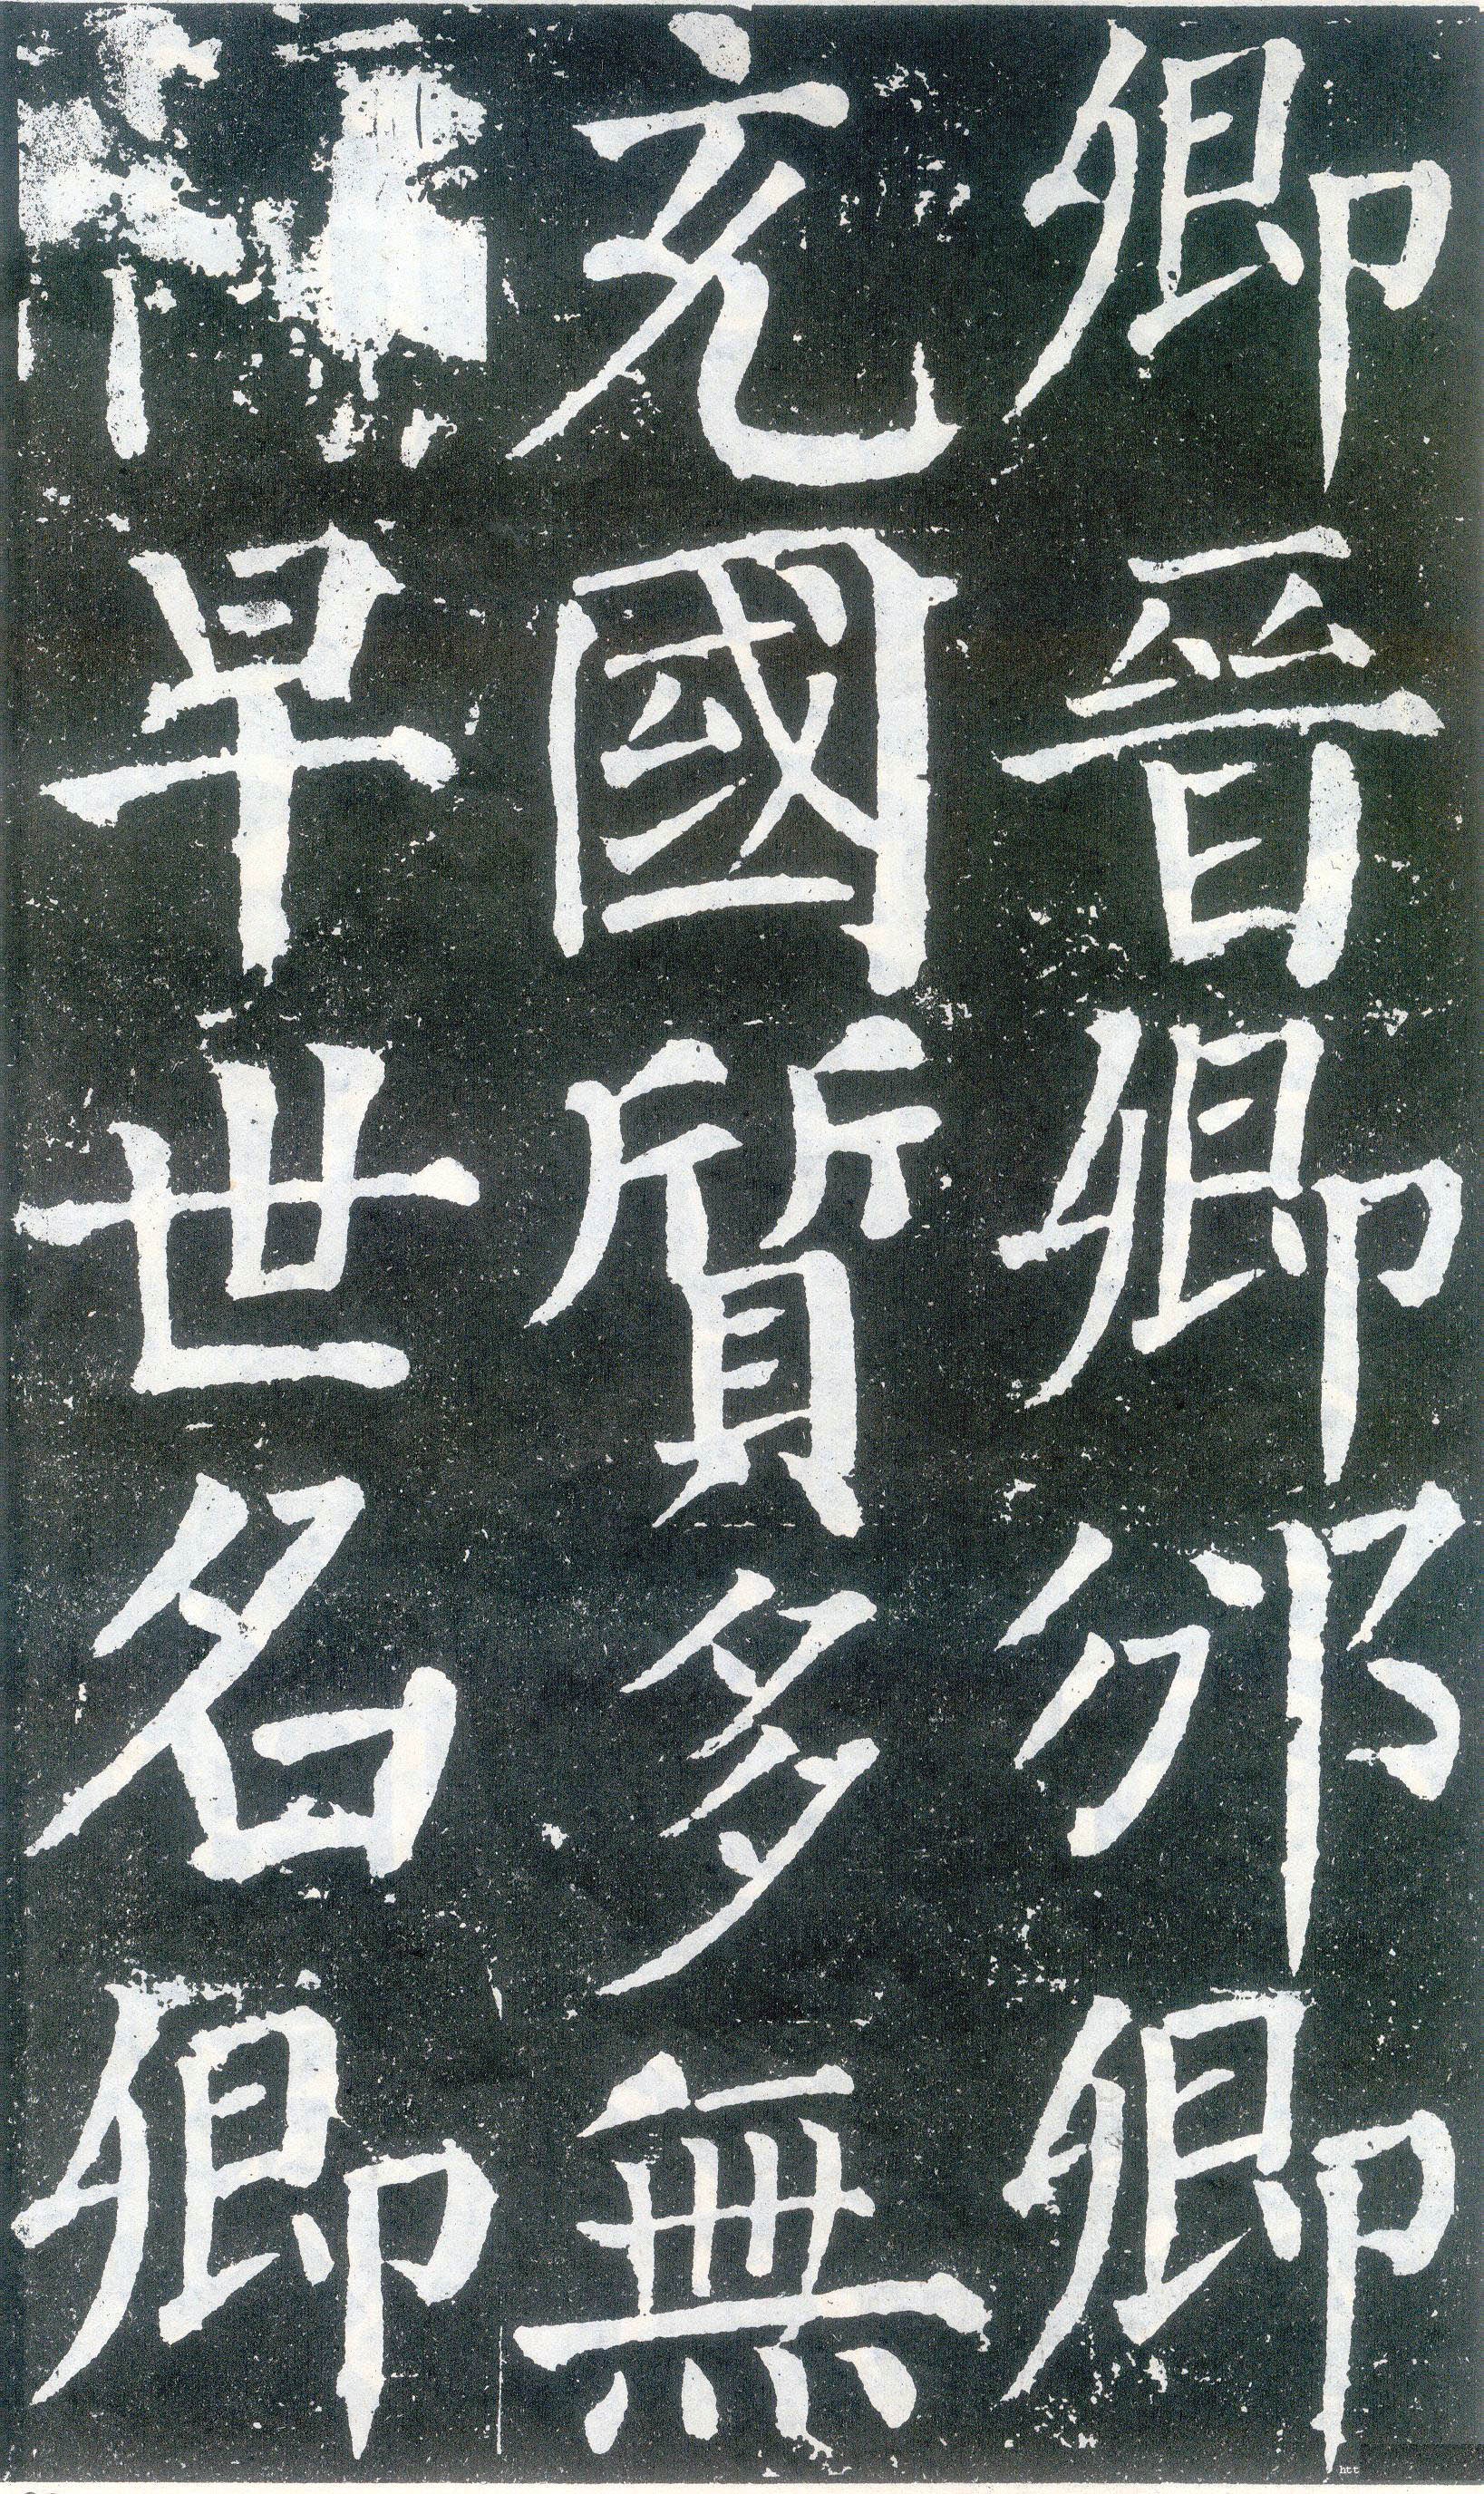 卿晉卿邠卿
充國質多無
早世名卿
htt